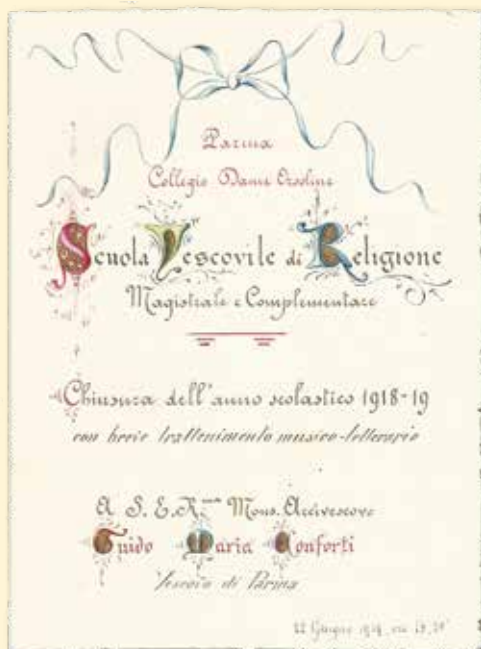 Parma
Collegio Dame Orsoline
Scuola Vescovile di Religione
Magistrale e Complementare
Chiusura dell'anno scolastico 1918-19
con breve trattenimento musico-letterario
A S. E. R.ma Mons. Arcivescovo
Guido Maria Conforti
Vescovo di Parma
22 Giugno 1919, ore